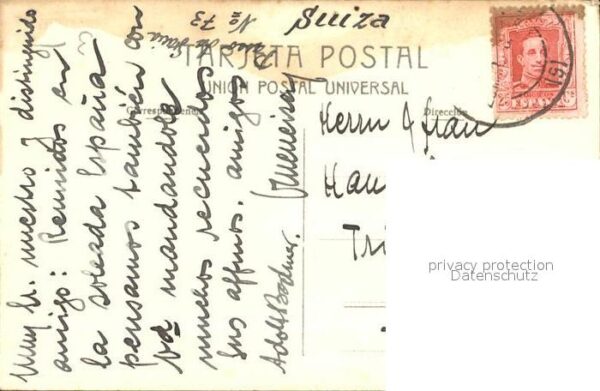 Suiza
No 73
TARJETA POSTAL
UNION POSTAL UNIVERSAL
Correspondencia
Dirección
ESPAÑA
Muy Sr. nuestro y distinguido
amigo: Reunidos en
la soleada España
pensamos también con
Vd mandandole
muchos recuerdos
sus affmos. amigos
Adolf
Herrn & Frau
Hau
Tri
privacy protection
Datenschutz